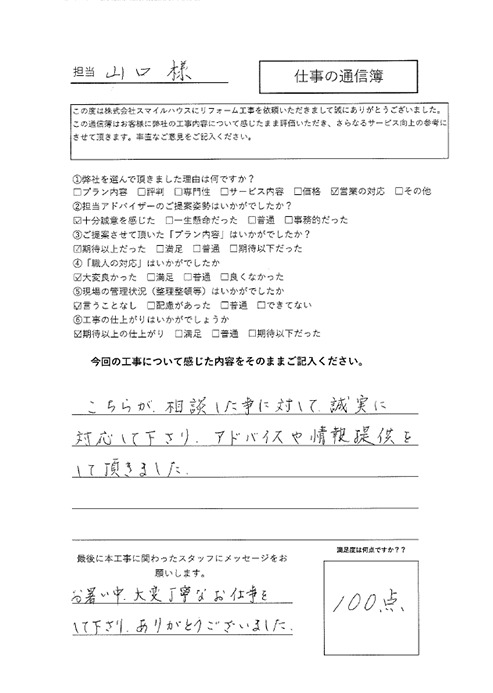 担当 山口 様
仕事の通信簿
この度は株式会社スマイルハウスにリフォーム工事を依頼いただきまして誠にありがとうございました。
この通信簿はお客様に弊社の工事内容について感じたまま評価いただき、さらなるサービス向上の参考に
させて頂きます。率直なご意見をご記入ください。
①弊社を選んで頂きました理由は何ですか？
□プラン内容 □評判 □専門性 □サービス内容 □価格 ☑営業の対応 □その他
②担当アドバイザーのご提案姿勢はいかがでしたか？
☑十分誠意を感じた □一生懸命だった □普通 □事務的だった
③ご提案させて頂いた「プラン内容」はいかがでしたか？
☑期待以上だった □満足 □普通 □期待以下だった
④「職人の対応」はいかがでしたか
☑大変良かった □満足 □普通 □良くなかった
⑤現場の管理状況（整理整頓等）はいかがでしたか
☑言うことなし □配慮があった □普通 □できてない
⑥工事の仕上がりはいかがでしょうか
☑期待以上の仕上がり □満足 □普通 □期待以下だった
今回の工事について感じた内容をそのままご記入ください。
こちらが、相談した事に対して、誠実に
対応して下さり、アドバイスや情報提供を
して頂きました。
最後に本工事に関わったスタッフにメッセージをお
願いします。
お暑い中、大変丁寧なお仕事を
して下さり、ありがとうございました。
満足度は何点ですか？？
100点